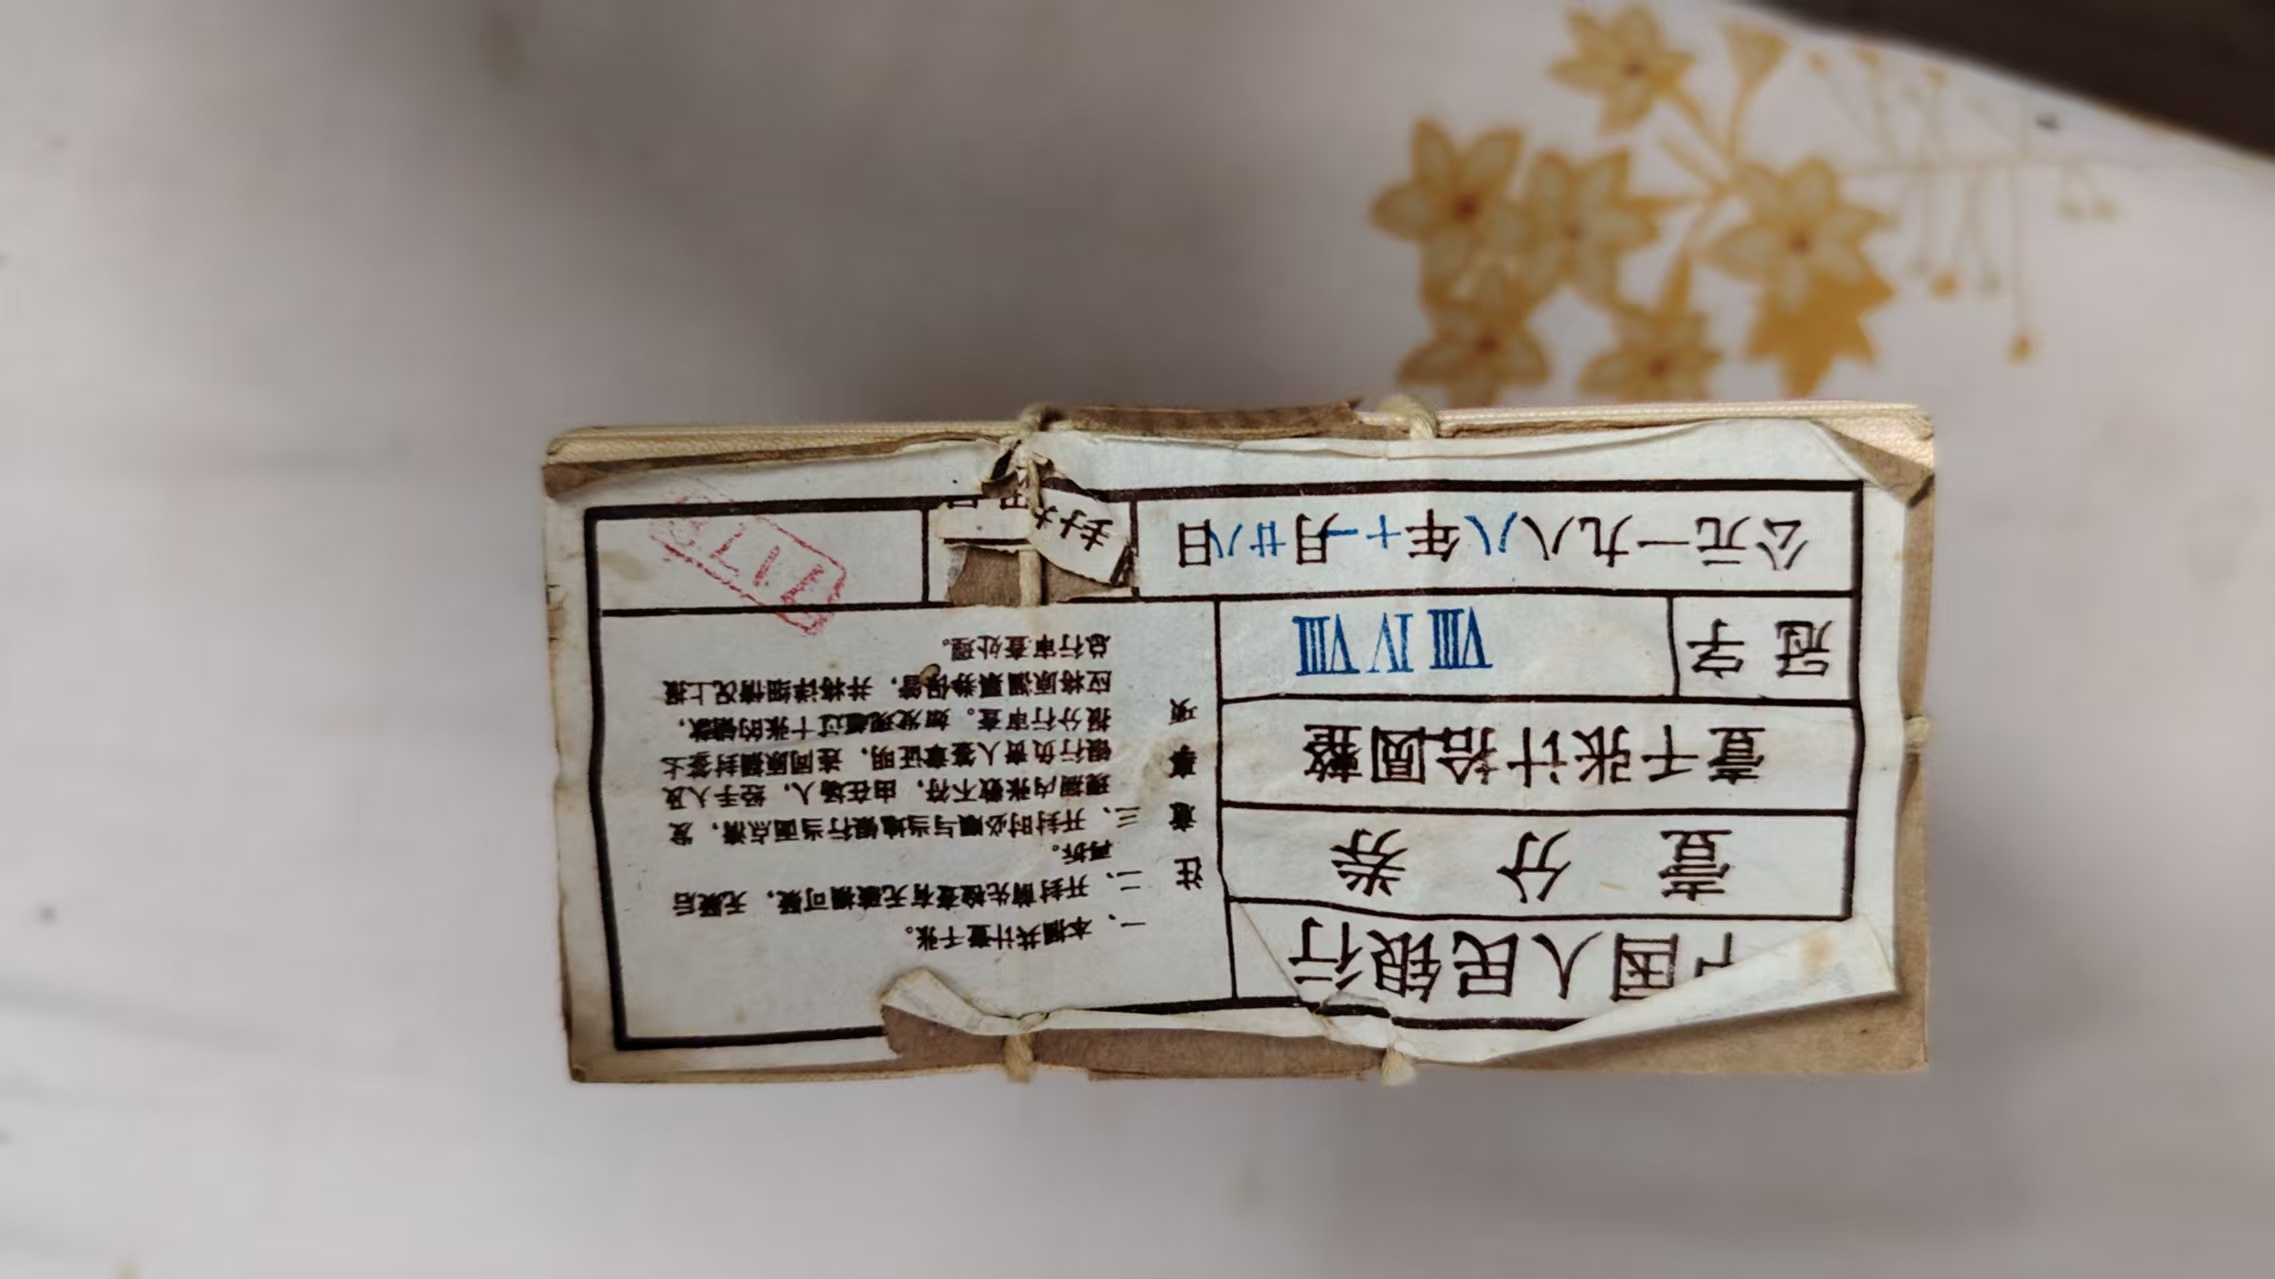 中国人民银行
壹分券
壹千张计拾圆整
冠字 Ⅷ Ⅳ Ⅷ
公元一九八八年十一月廿八日
注意事项
一、本捆共计壹千张。
二、开封前先检查有无破损可疑，无疑后
再拆。
三、开封时必须与当地银行当面点清，发
现捆内张数不符，由在场人，经手人及
银行负责人签章证明，连同原捆封签上
报分行审查。如发现超过十张的错款，
应将原捆票券保管，并将详细情况上报
总行审查处理。
封